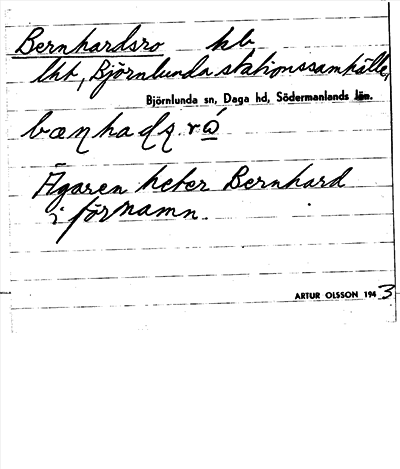 Bernhardsro hb
lht, Björnlunda stationssamhälle,
Björnlunda sn, Daga hd, Södermanlands län.
Ägaren heter Bernhard
i förnamn.
ARTUR OLSSON 1943